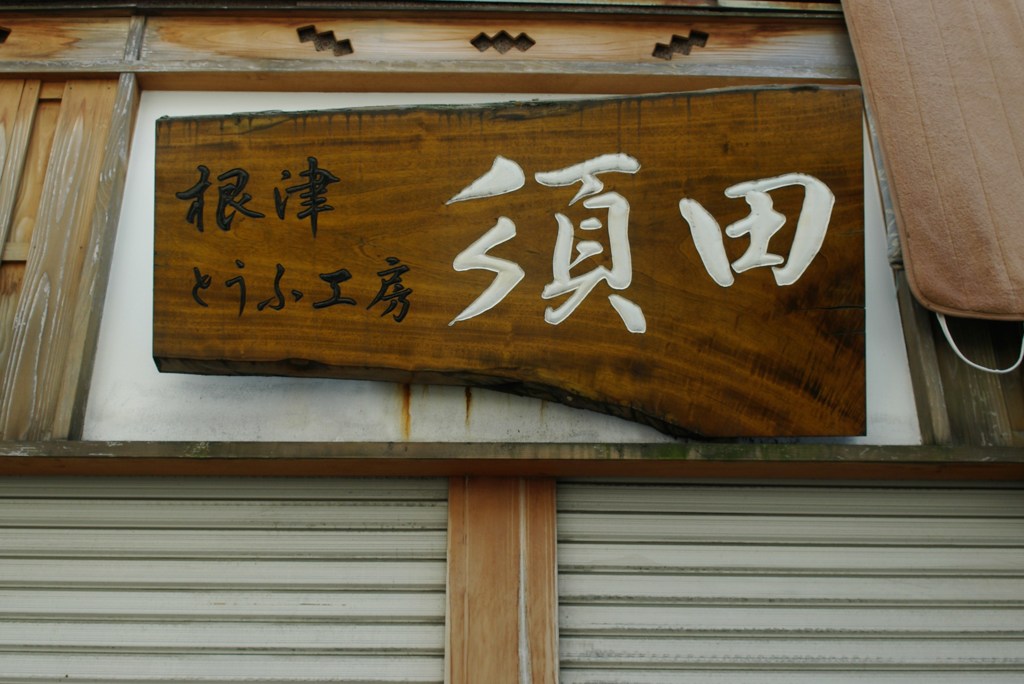 根津
とうふ工房
須田